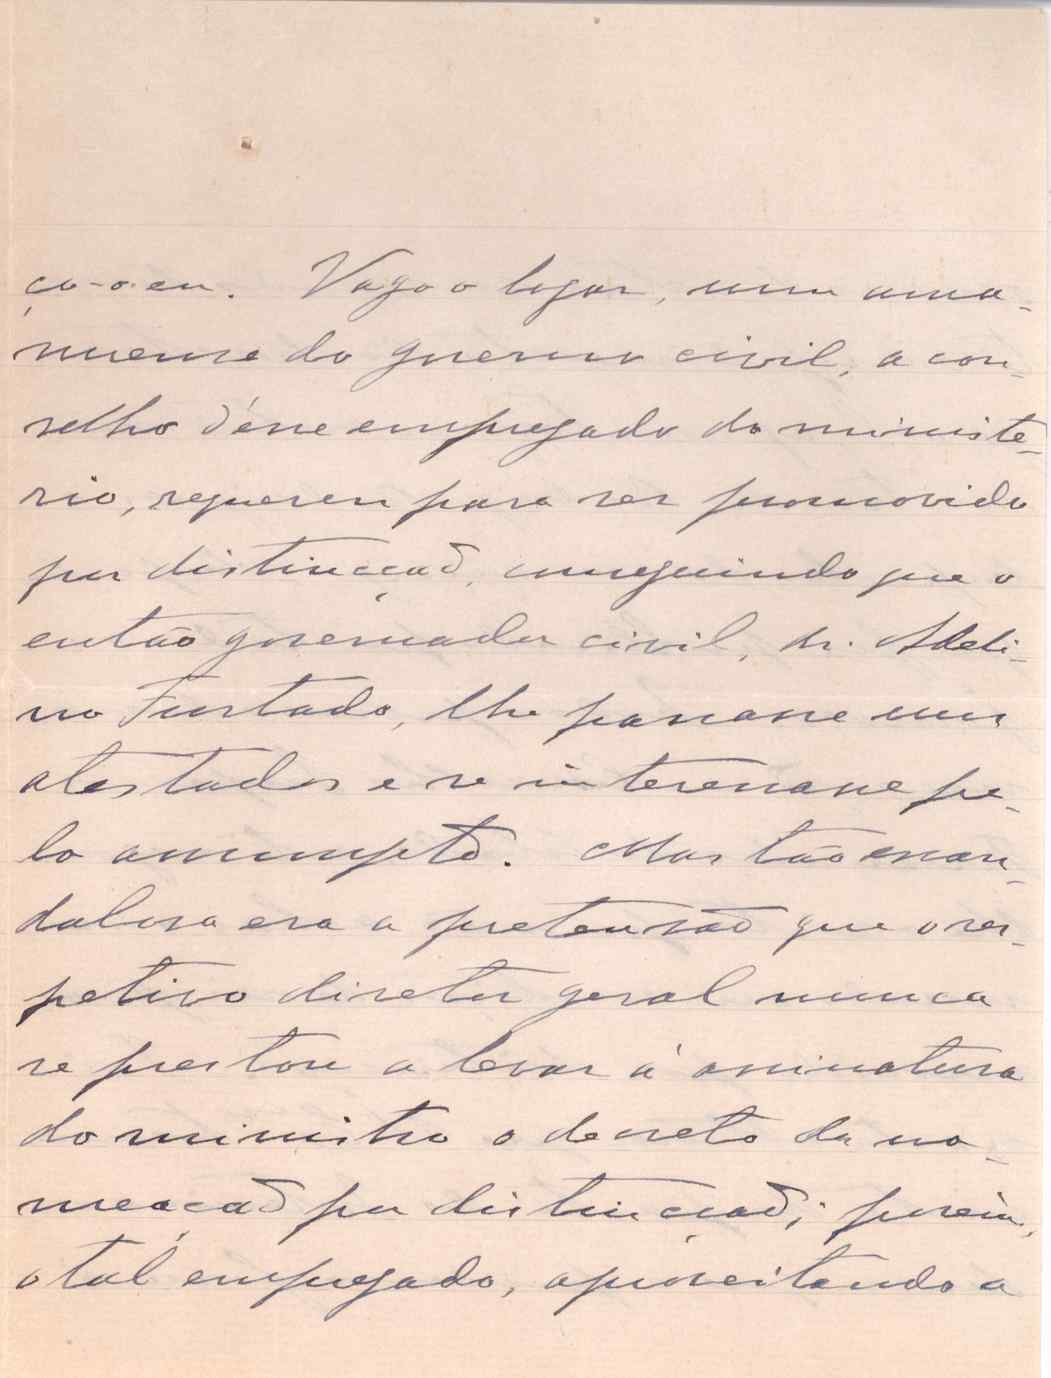 ço-o eu. Vago o logar, um ama-
nuense do governo civil, a con-
selho d'esse empregado do ministe-
rio, requereu para ser promovido
por distincção, conseguindo que o
então governador civil, dr. Adeli-
no Furtado, lhe passasse uns
atestados e se interessasse pe-
lo assumpto. Mas tão escan-
dalosa era a pretensão que o res-
petivo diretor geral nunca
se prestou a levar á assinatura
do ministro o decreto da no-
meação por distincção; porèm,
o tal empregado, aproveitando a